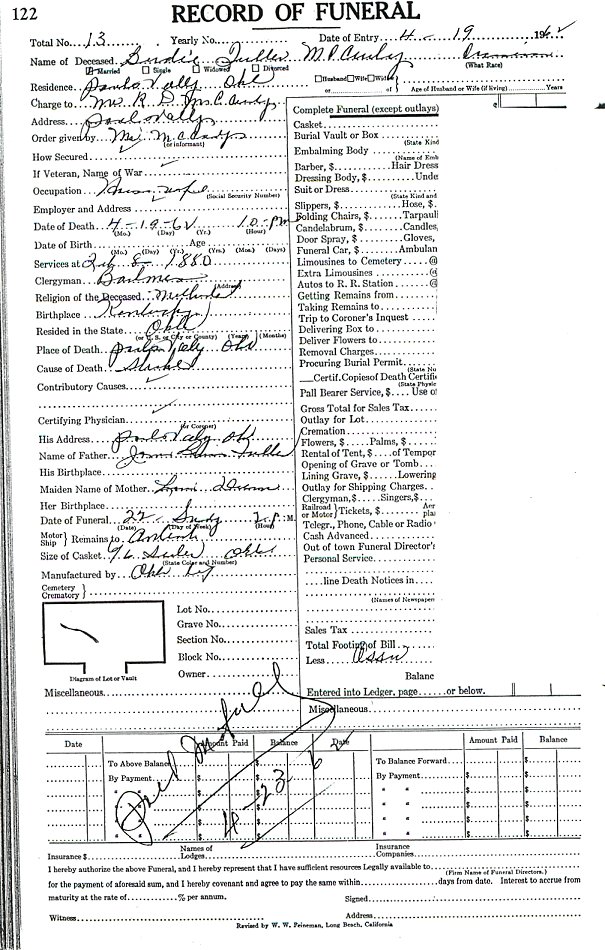 122
RECORD OF FUNERAL
Total No. 13 Yearly No. Date of Entry 4 - 19 1962
Name of Deceased Birdie Fuller McCurdy
Married Single Widowed Divorced (What Race)
Residence Pauls Valley Okl Husband Wife Widow
or Age of Husband or Wife (if living) Years
Charge to Mr. R. S. McCurdy
Address Pauls Valley
Order given by Mr. McCurdy
(or informant)
How Secured
If Veteran, Name of War
Occupation House wife
(Social Security Number)
Employer and Address
Date of Death 4-19-62 10-PM
(Mo.) (Day) (Yr.) (Hour)
Date of Birth Age
(Mo.) (Day) (Yr.) (Yrs.) (Mos.) (Days)
Services at 8-1880
Clergyman
(Address)
Religion of the Deceased Methodist
Birthplace Kentucky
Resided in the State Okla
(or U. S. or City or County) (Years) (Months)
Place of Death Pauls Valley Okl
Cause of Death
Contributory Causes
Certifying Physician
(or Coroner)
His Address Pauls Valley Ok
Name of Father Fuller
His Birthplace
Maiden Name of Mother
Her Birthplace
Date of Funeral 22 Sunday 2 P. M.
(Date) (Day of Week) (Hour)
Motor Ship Remains to
Size of Casket Okla
(State Color and Number)
Manufactured by Okl
Cemetery Crematory
Lot No.
Grave No.
Section No.
Block No.
Owner
Diagram of Lot or Vault
Complete Funeral (except outlays)
Casket
Burial Vault or Box
(State Kind
Embalming Body
(Name of Emb
Barber, $ Hair Dress
Dressing Body, $ Unde
Suit or Dress
(State Kind and
Slippers, $ Hose, $
Folding Chairs, $ Tarpauli
Candelabrum, $ Candles,
Door Spray, $ Gloves,
Funeral Car, $ Ambulan
Limousines to Cemetery @
Extra Limousines @
Autos to R. R. Station @
Getting Remains from
Taking Remains to
Trip to Coroner's Inquest
Delivering Box to
Deliver Flowers to
Removal Charges
Procuring Burial Permit
(State Nu
Certif. Copies of Death Certific
(State Physic
Pall Bearer Service, $ Use of
Gross Total for Sales Tax
Outlay for Lot
Cremation
Flowers, $ Palms, $
Rental of Tent, $ of Tempor
Opening of Grave or Tomb
Lining Grave, $ Lowering
Outlay for Shipping Charges
Clergyman, $ Singers, $
Railroad or Motor Tickets, $ Aer
plai
Telegr., Phone, Cable or Radio
Cash Advanced
Out of town Funeral Director's
Personal Service
line Death Notices in
(Names of Newspaper
Sales Tax
Total Footing of Bill
Less
Balanc
Entered into Ledger, page or below.
Miscellaneous Miscellaneous
Date Amount Paid Balance Date Amount Paid Balance
To Above Balance $ $ To Balance Forward $
By Payment $ $ By Payment $ $
" " $ $ " " $ $
" " $ $ " " $ $
" " $ $ " " $ $
" " $ $ " " $ $
Paid in full
4-23 62
Insurance $ Names of Lodges Insurance Companies
I hereby authorize the above Funeral, and I hereby represent that I have sufficient resources Legally available to
(Firm Name of Funeral Directors.)
for the payment of aforesaid sum, and I hereby covenant and agree to pay the same within days from date. Interest to accrue from
maturity at the rate of % per annum. Signed
Witness Address
Revised by W. W. Feineman, Long Beach, California